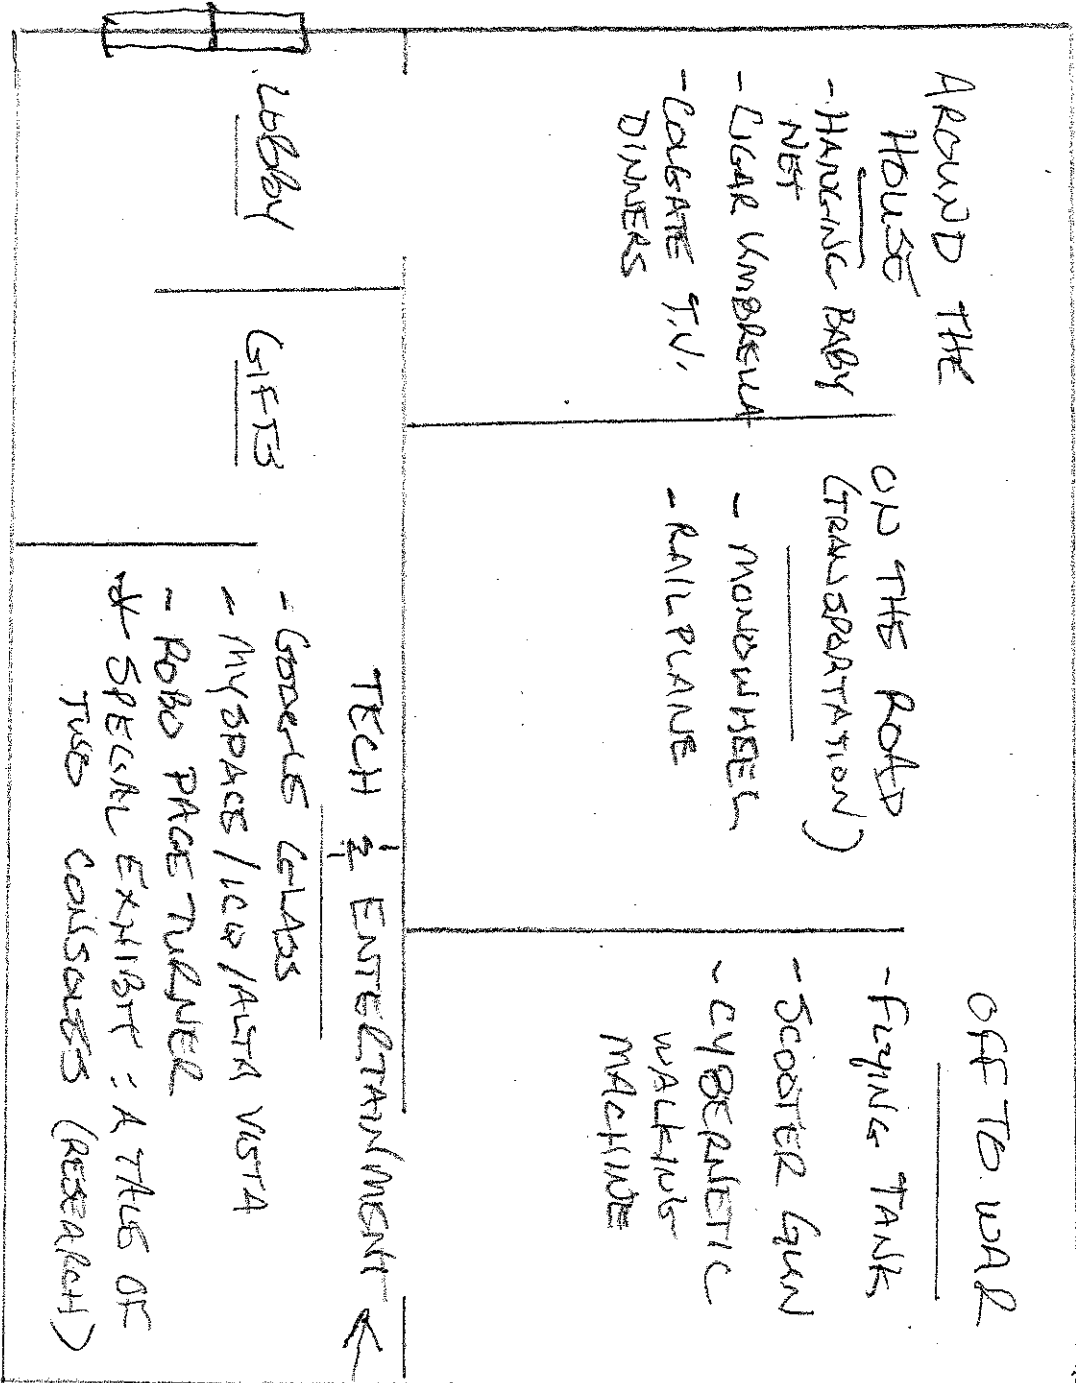 AROUND THE
HOUSE
- HANGING BABY
NET
- CIGAR UMBRELLA
- COLGATE T.V.
DINNERS
ON THE ROAD
(TRANSPORTATION)
- MONOWHEEL
- RAILPLANE
OFF TO WAR
- FLYING TANK
- SCOOTER GUN
- CYBERNETIC
WALKING
MACHINE
LOBBY
GIFTS
TECH & ENTERTAINMENT
- GOOGLE GLASS
- MYSPACE/ICQ/ALTA VISTA
- ROBO PAGE TURNER
* SPECIAL EXHIBIT: A TALE OF
TWO CONSOLES (RESEARCH)